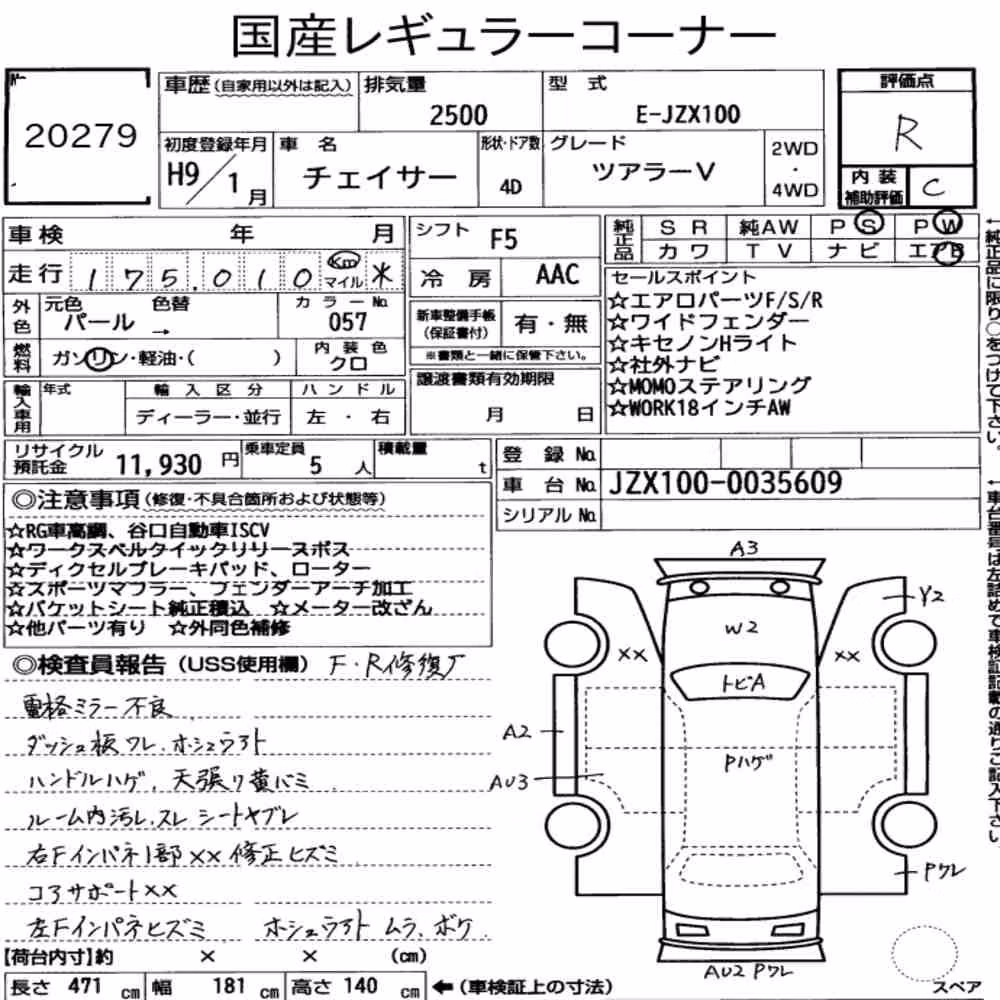 国産レギュラーコーナー
20279
車歴(自家用以外は記入)
排気量
2500
型式
E-JZX100
評価点
R
初度登録年月
H9/1月
車名
チェイサー
形状・ドア数
4D
グレード
ツアラーV
2WD
・
4WD
内装
補助評価
C
車検 年 月
シフト F5
純正品
SR 純AW PS PW
カワ TV ナビ エアB
走行 175,010 Km マイル 米
冷房 AAC
セールスポイント
☆エアロパーツF/S/R
☆ワイドフェンダー
☆キセノンHライト
☆社外ナビ
☆MOMOステアリング
☆WORK18インチAW
外色
元色 色替
パール →
カラーNo.
057
新車整備手帳
(保証書付)
有・無
※書類と一緒に保管下さい。
燃料
ガソリン・軽油・( )
内装色
クロ
譲渡書類有効期限
月 日
輸入車用
年式
輸入区分
ディーラー・並行
ハンドル
左・右
←純正品に限り○をつけて下さい。
リサイクル
預託金
11,930円
乗車定員
5人
積載量
t
登録No.
車台No. JZX100-0035609
シリアルNo.
←車台番号は左詰めで車検証記載の通りご記入下さい。
◎注意事項(修復・不具合箇所および状態等)
☆RG車高調、谷口自動車ISCV
☆ワークスベルクイックリリースボス
☆ディクセルブレーキパッド、ローター
☆スポーツマフラー、フェンダーアーチ加工
☆バケットシート純正積込 ☆メーター改ざん
☆他パーツ有り ☆外同色補修
◎検査員報告(USS使用欄) F・R修復歴
電格ミラー不良
ダッシュ板ワレ、ホシュウアト
ハンドルハゲ、天張り黄バミ
ルーム内汚レ、スレ シートヤブレ
右Fインパネ1部××修正ヒズミ
コアサポート××
左Fインパネヒズミ ホシュウアト ムラ、ボケ
A3
Y2
W2
××
××
トビA
A2
AU3
Pハゲ
Pワレ
AU2 Pワレ
スペア
【荷台内寸】約 × × (cm)
長さ 471cm 幅 181cm 高さ 140cm ←(車検証上の寸法)